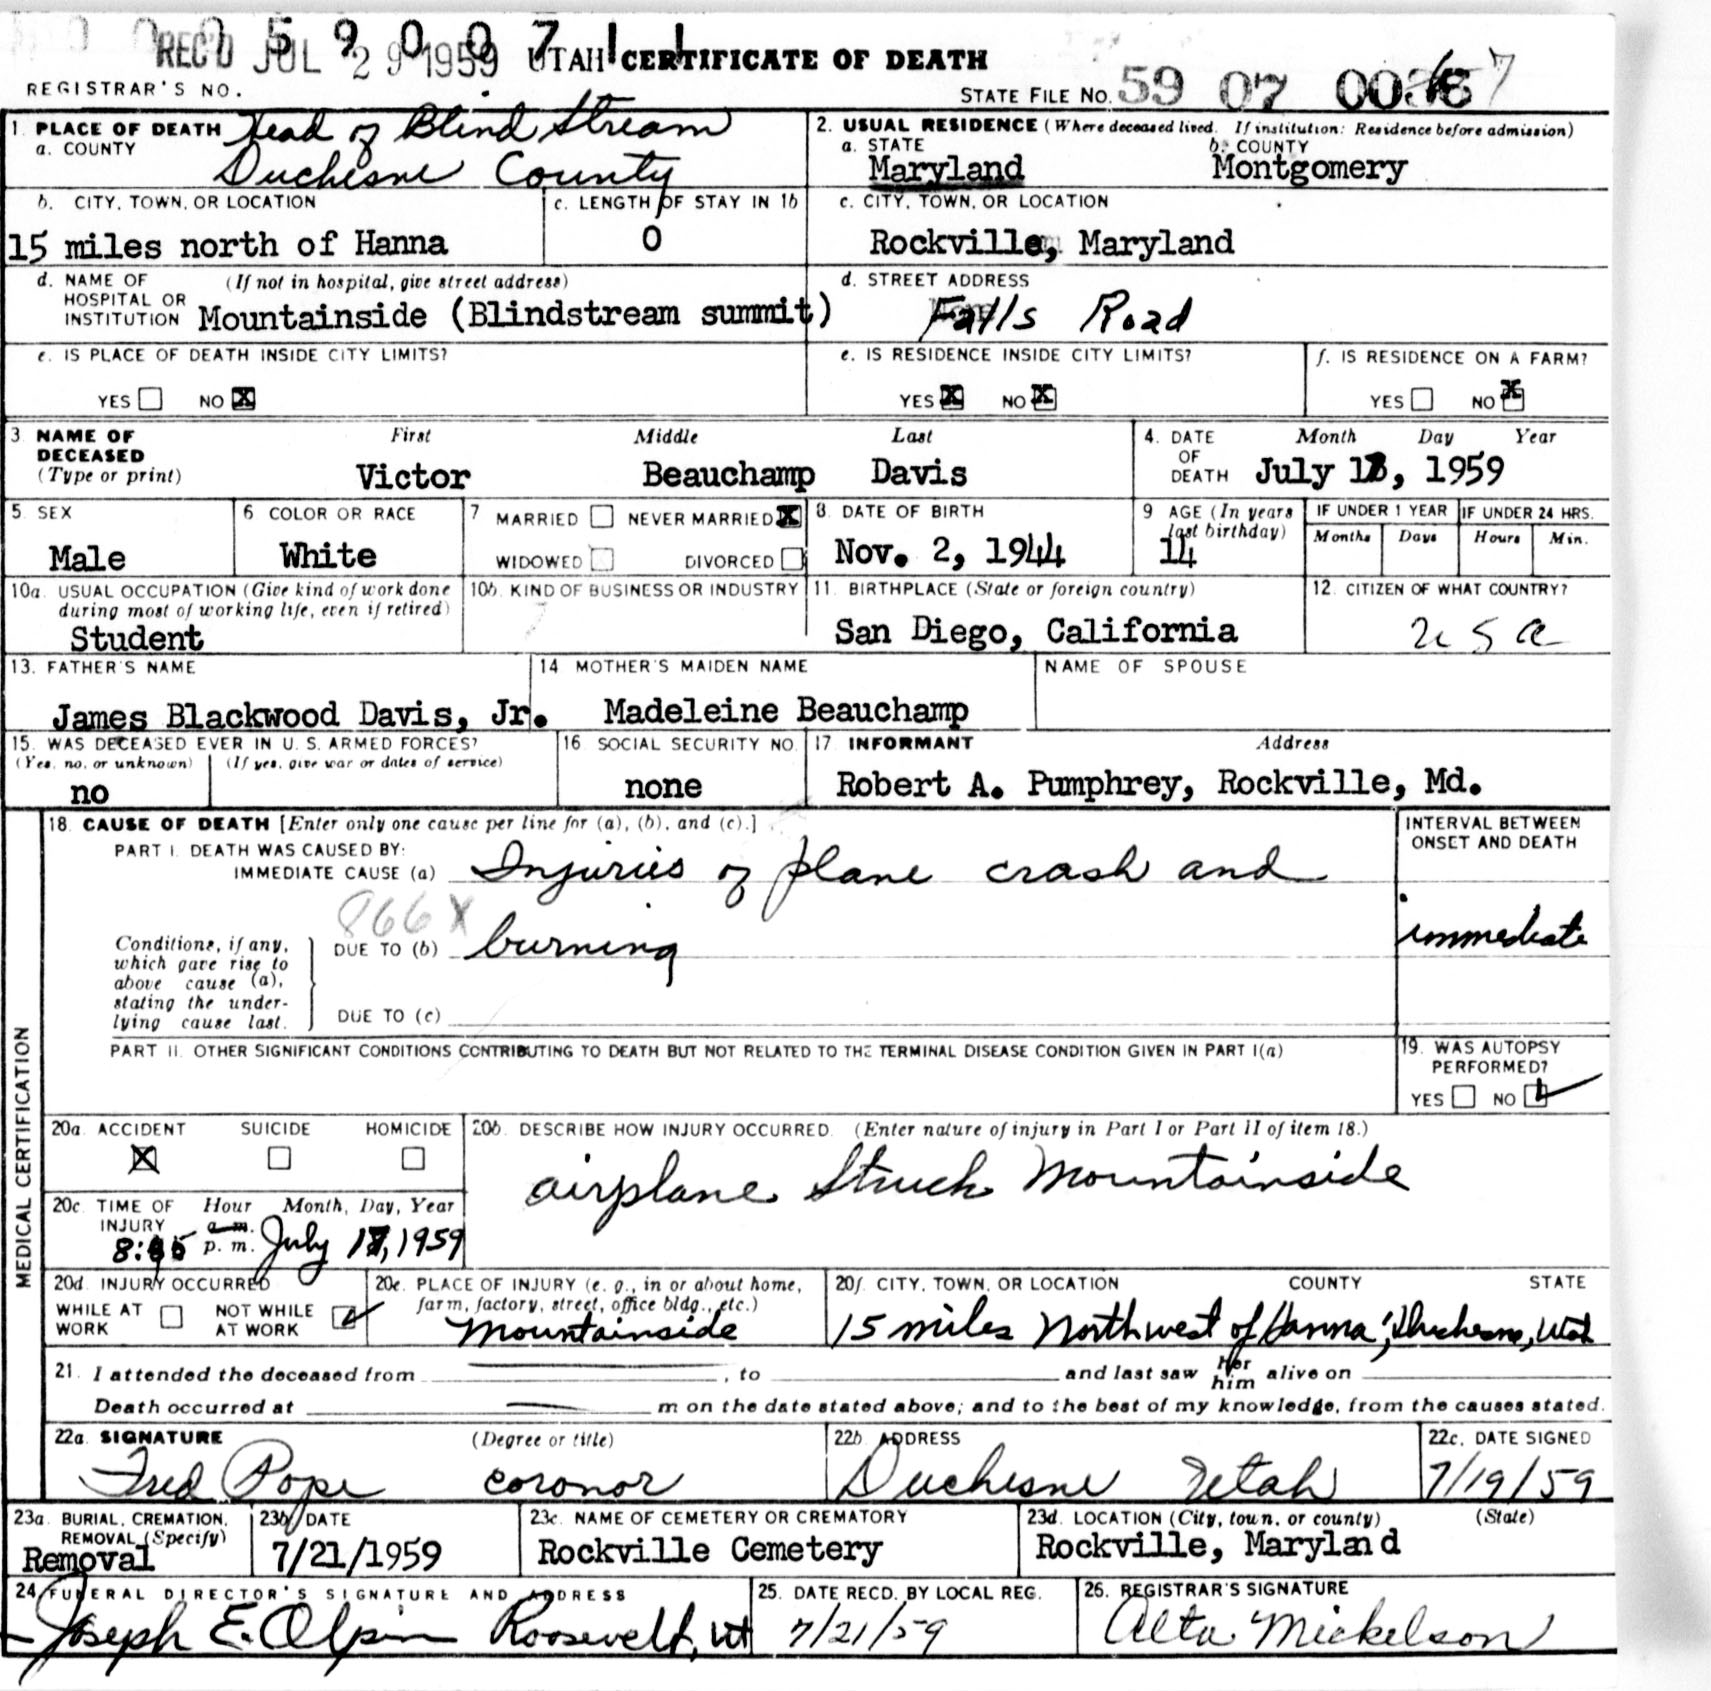 REC'D JUL 29 1959 UTAH CERTIFICATE OF DEATH
REGISTRAR'S NO.
STATE FILE NO. 59 07 00
1. PLACE OF DEATH Head of Blind Stream
a. COUNTY Duchesne County
2. USUAL RESIDENCE (Where deceased lived. If institution: Residence before admission)
a. STATE Maryland b. COUNTY Montgomery
b. CITY, TOWN, OR LOCATION 15 miles north of Hanna
c. LENGTH OF STAY IN 1b 0
c. CITY, TOWN, OR LOCATION Rockville, Maryland
d. NAME OF HOSPITAL OR INSTITUTION (If not in hospital, give street address) Mountainside (Blindstream summit)
d. STREET ADDRESS Falls Road
e. IS PLACE OF DEATH INSIDE CITY LIMITS?
YES NO X
e. IS RESIDENCE INSIDE CITY LIMITS?
YES X NO X
f. IS RESIDENCE ON A FARM?
YES NO X
3. NAME OF DECEASED (Type or print)
First Middle Last
Victor Beauchamp Davis
4. DATE OF DEATH Month Day Year
July, 1959
5. SEX Male
6 COLOR OR RACE White
7 MARRIED NEVER MARRIED X
WIDOWED DIVORCED
8. DATE OF BIRTH Nov. 2, 1944
9 AGE (In years last birthday) 14
IF UNDER 1 YEAR IF UNDER 24 HRS.
Months Days Hours Min.
10a. USUAL OCCUPATION (Give kind of work done during most of working life, even if retired) Student
10b. KIND OF BUSINESS OR INDUSTRY
11. BIRTHPLACE (State or foreign country) San Diego, California
12. CITIZEN OF WHAT COUNTRY? USA
13. FATHER'S NAME James Blackwood Davis, Jr.
14 MOTHER'S MAIDEN NAME Madeleine Beauchamp
NAME OF SPOUSE
15. WAS DECEASED EVER IN U. S. ARMED FORCES?
(Yes, no, or unknown) (If yes, give war or dates of service)
no
16. SOCIAL SECURITY NO. none
17. INFORMANT Address
Robert A. Pumphrey, Rockville, Md.
MEDICAL CERTIFICATION
18. CAUSE OF DEATH [Enter only one cause per line for (a), (b), and (c).]
INTERVAL BETWEEN ONSET AND DEATH
PART I. DEATH WAS CAUSED BY:
IMMEDIATE CAUSE (a) Injuries of plane crash and
866X
immediate
Conditions, if any, which gave rise to above cause (a), stating the underlying cause last.
DUE TO (b) burning
DUE TO (c)
PART II. OTHER SIGNIFICANT CONDITIONS CONTRIBUTING TO DEATH BUT NOT RELATED TO THE TERMINAL DISEASE CONDITION GIVEN IN PART I(a)
19. WAS AUTOPSY PERFORMED?
YES NO
20a. ACCIDENT SUICIDE HOMICIDE
X
20b. DESCRIBE HOW INJURY OCCURRED. (Enter nature of injury in Part I or Part II of item 18.)
airplane Struck Mountainside
20c. TIME OF INJURY Hour Month, Day, Year
a.m. p.m. July 17, 1959
20d. INJURY OCCURRED
WHILE AT WORK NOT WHILE AT WORK
20e. PLACE OF INJURY (e. g., in or about home, farm, factory, street, office bldg., etc.)
Mountainside
20f. CITY, TOWN, OR LOCATION COUNTY STATE
15 miles Northwest of Hanna, Duchesne, Utah
21. I attended the deceased from , to and last saw her him alive on
Death occurred at m on the date stated above; and to the best of my knowledge, from the causes stated.
22a. SIGNATURE (Degree or title)
Fred Pope coronor
22b. ADDRESS
Duchesne Utah
22c. DATE SIGNED
7/19/59
23a. BURIAL, CREMATION, REMOVAL (Specify)
Removal
23b. DATE
7/21/1959
23c. NAME OF CEMETERY OR CREMATORY
Rockville Cemetery
23d. LOCATION (City, town, or county) (State)
Rockville, Maryland
24 FUNERAL DIRECTOR'S SIGNATURE AND ADDRESS
Joseph E. Olpin Roosevelt, Ut
25. DATE RECD. BY LOCAL REG.
7/21/59
26. REGISTRAR'S SIGNATURE
Alta Mickelson